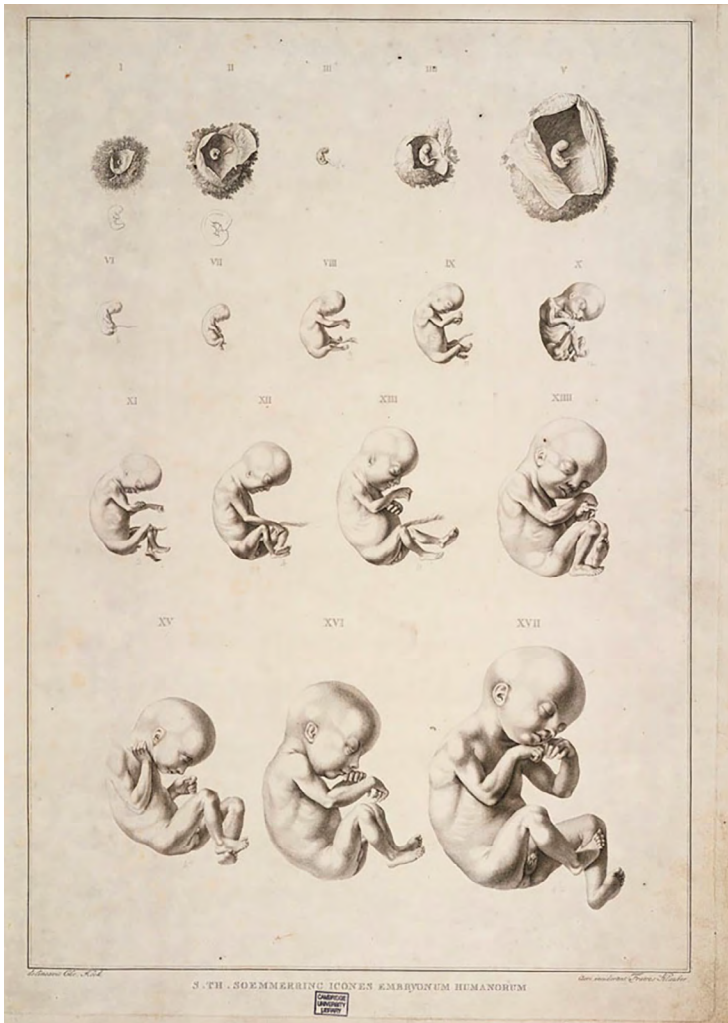 I II III IIII V
VI VII VIII IX X
XI XII XIII XIIII
XV XVI XVII
S. TH. SOEMMERRING ICONES EMBRYONUM HUMANORUM
CAMBRIDGE
UNIVERSITY
LIBRARY